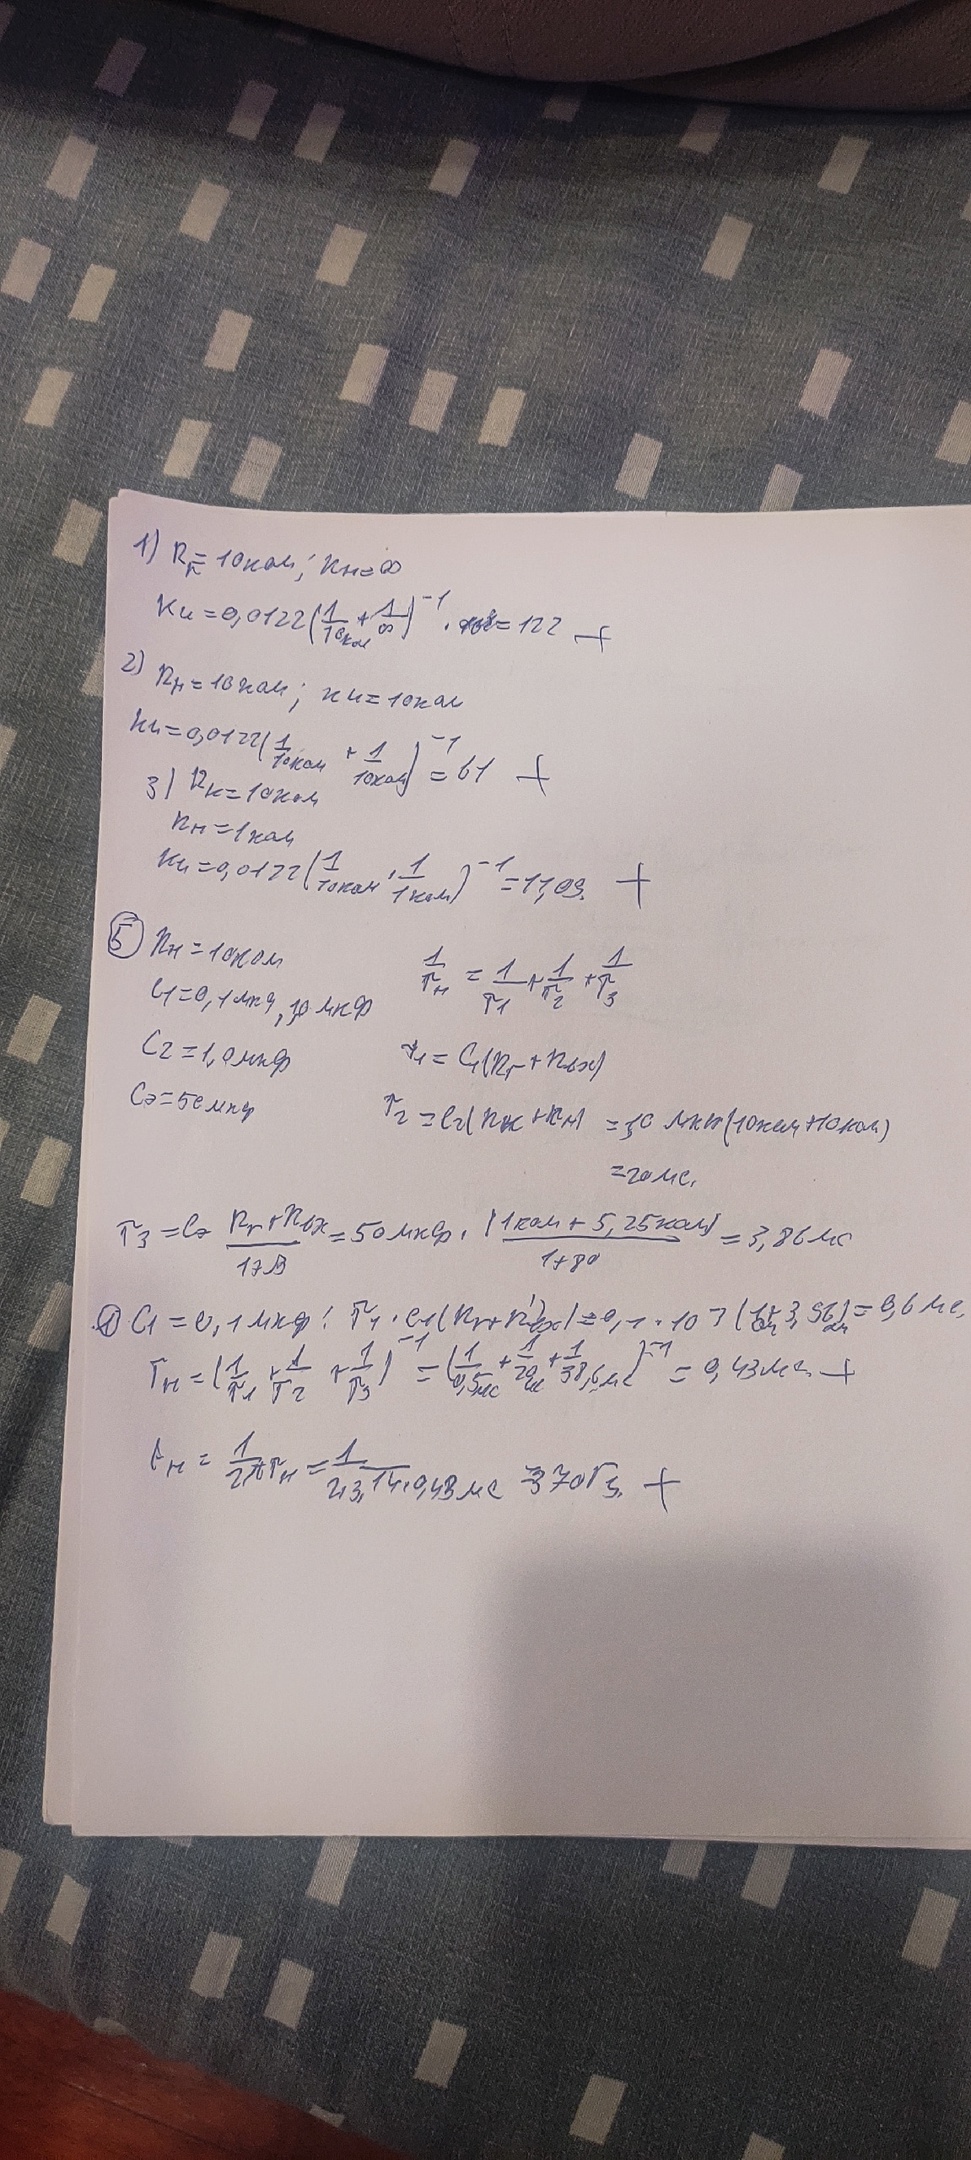 1) Rк = 10 ком; Rн = ∞
Ku = 0,0122 (1/10ком + 1/∞)^-1 · = 122 +
2) Rн = 10 ком; Rн = 10 ком
Ku = 0,0122 (1/10ком + 1/10ком)^-1 = 61 +
3) Rк = 10 ком
Rн = 1 ком
Ku = 0,0122 (1/10ком + 1/1ком)^-1 = 11,09. +
⑤ Rн = 10 ком
1/τн = 1/τ1 + 1/τ2 + 1/τ3
C1 = 0,1 мкф, 10 мкф
C2 = 1,0 мкф
τ1 = C1(Rг + Rвх)
Cэ = 50 мкф
τ2 = C2(Rк + Rн) = (10ком + 10ком)
= 20 мс.
τ3 = Cэ (Rг + Rвх)/(1+β) = 50 мкф · (1ком + 5,25ком)/(1+80) = 3,86 мс
C1 = 0,1 мкф: τ1 · C1(Rг + R'вх) = 0,1 · 10 = 0,6 мс.
τн = (1/τ1 + 1/τ2 + 1/τ3)^-1 = (1/0,5мс + 1/20мс + 1/38,6мс)^-1 = 0,43 мс +
fн = 1/2πτн = 1/2·3,14·0,43мс = 370 Гц. +